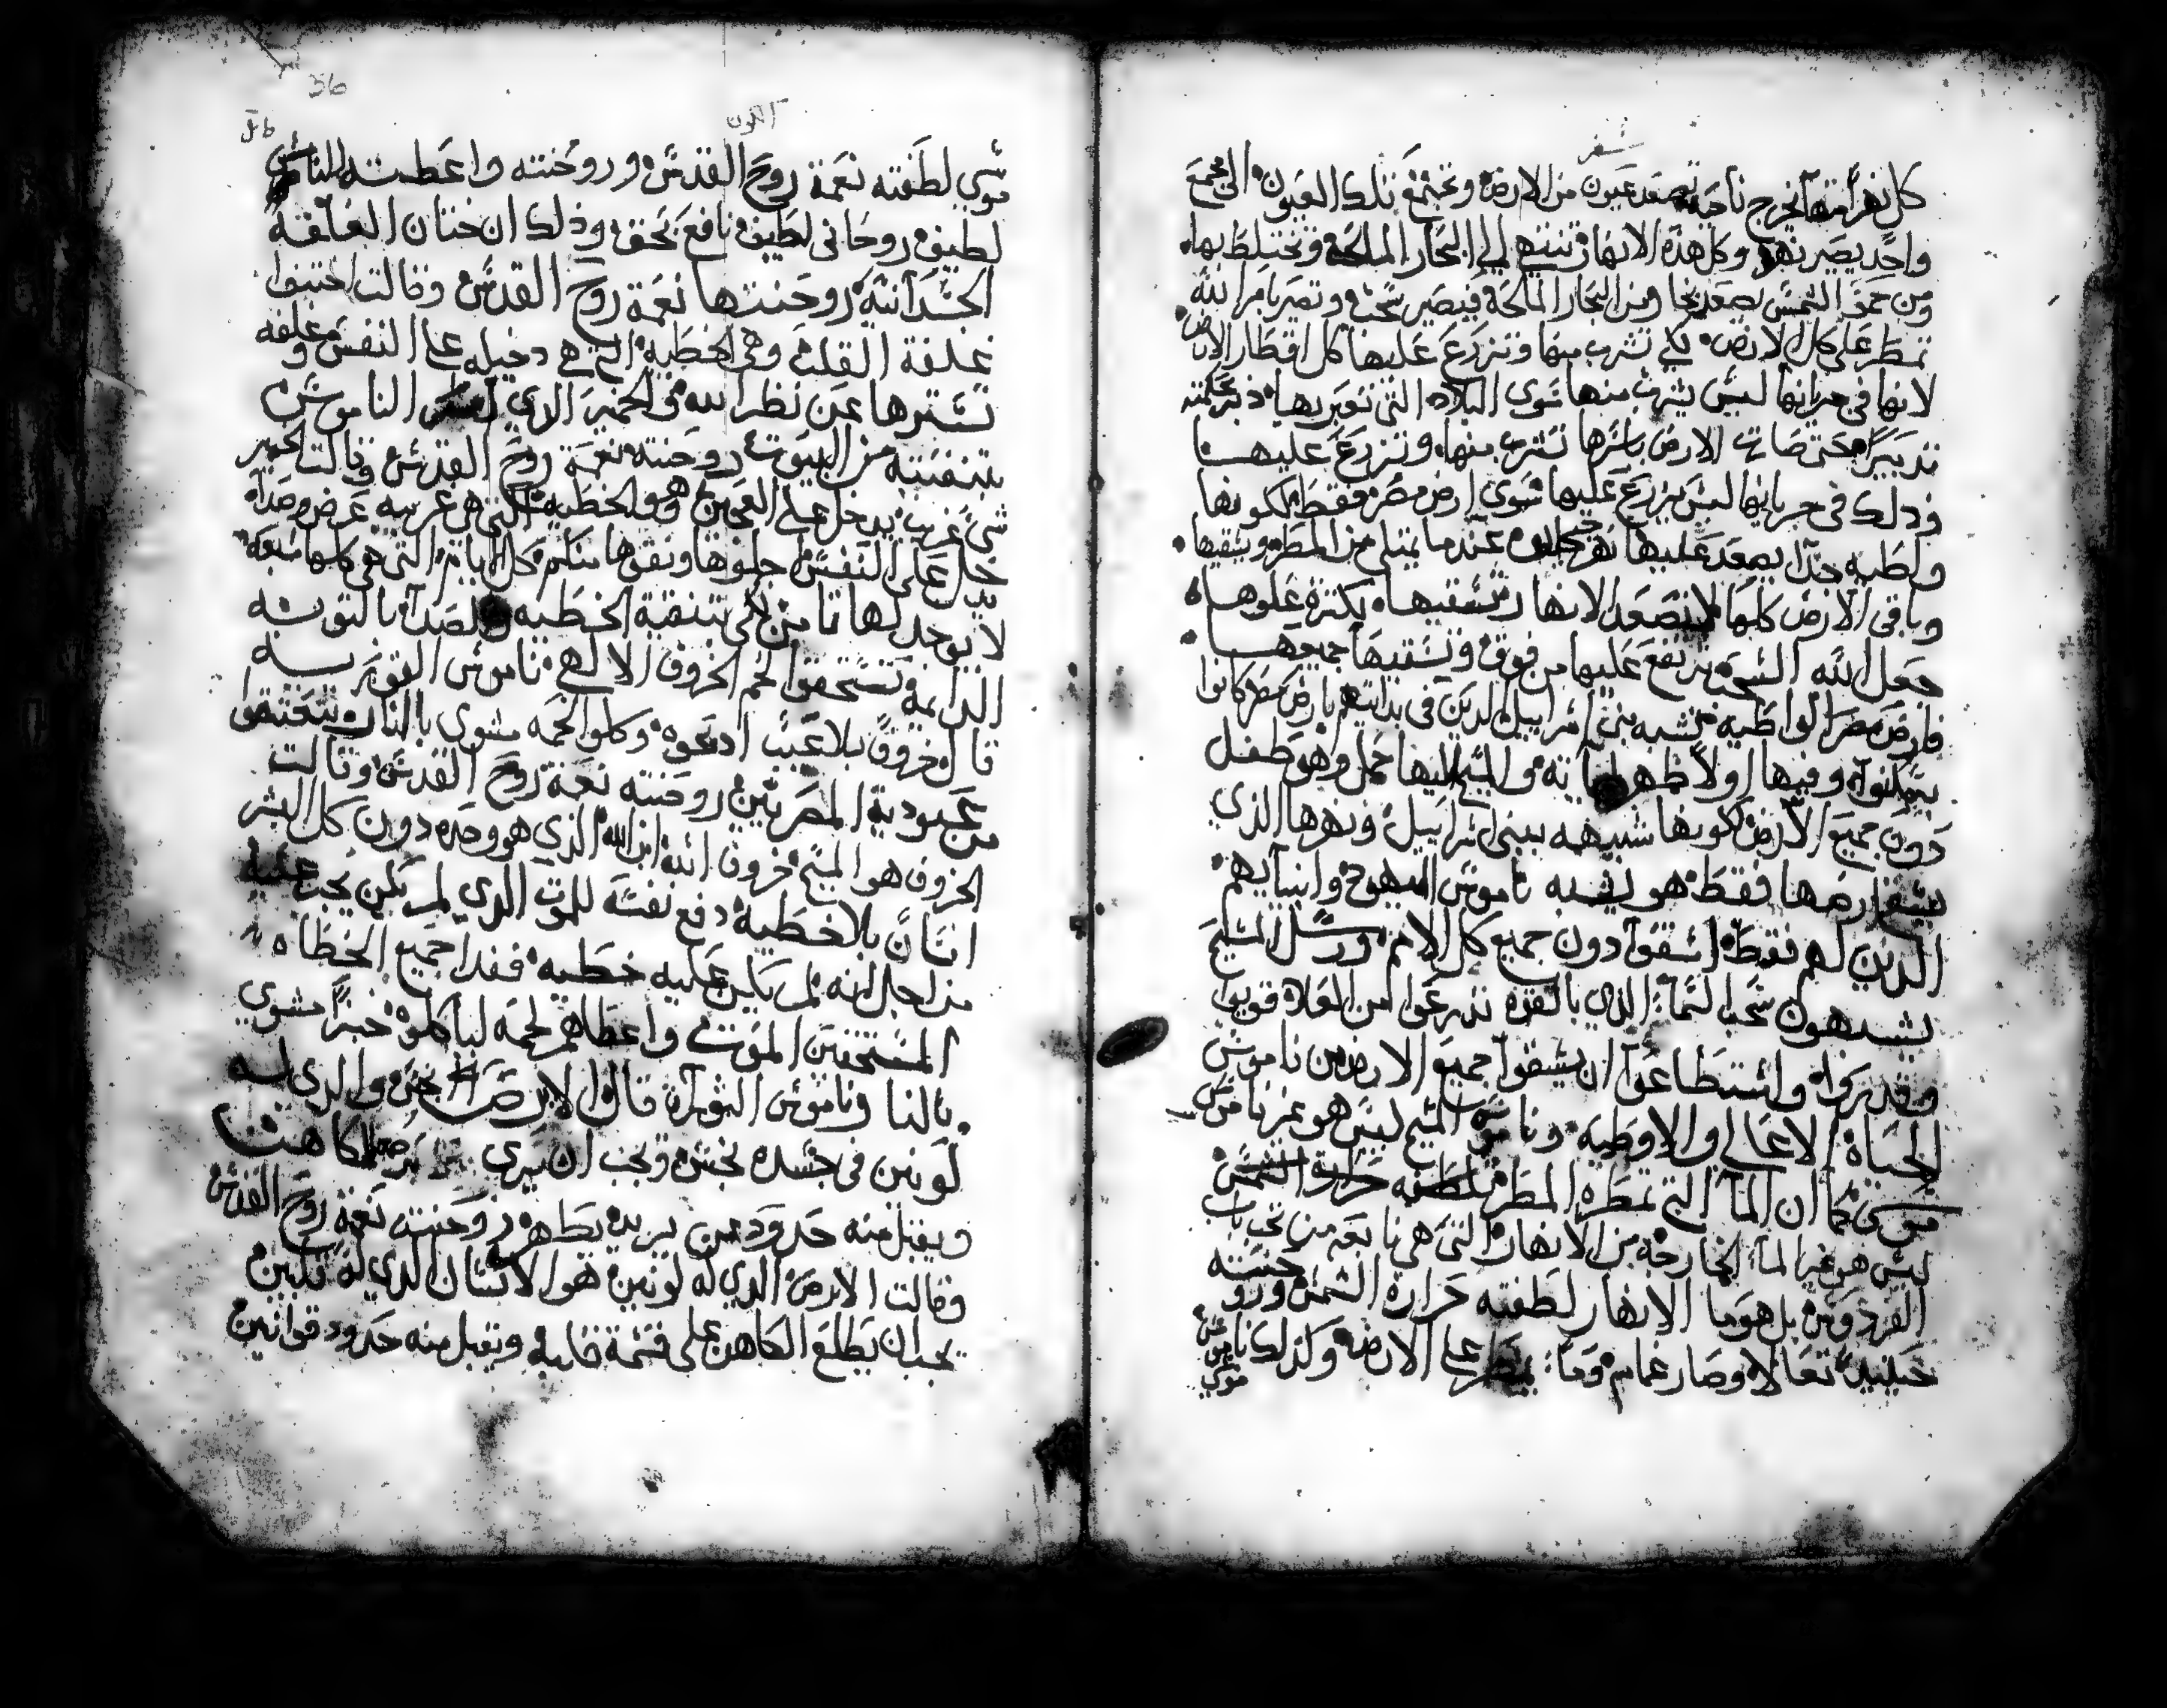 سفر
كل نهرا منها تخرج ناحية تصعد عيون من الارض وتجتمع تلك العيون الى مجمع
واحد يصير نهر وكل هذه الانهار تنتهي الى البحار المالحة وتختلط بها
ومن حمو الشمس يصعد بخار من البحار المالحة فيصير سحب وتصير بامر الله
تمطر على كل الارض لكي تشرب منها وتزرع عليها كل اقطار الارض
لانها في جريانها ليس يشرب منها سوى البلاد التي تعبر بها
الارض باسرها تشرب منها وتزرع عليها
وذلك في جريانها ليس يزرع عليها سوى ارض مصر فقط لكونها
وطيه جدا يصعد عليها نهر عندما يمتلي من المطر ويسقيها
وباقي الارض كلها لا تصعد الانهار تسقيها بكثرة علوها
جعل الله السحب ترتفع عليها من فوق وتسقيها جميعها
فارض مصر الواطيه تشبه بني اسراييل الذين في بدايتهم بارض مصر كانوا
وفيها اولا ظهر والمسيح اليها حمل وهو طفل
دون جميع الارض لكونها شبيهه ببني اسراييل ونهرها الذي
يسقي ارضها فقط هو يشبه ناموس اليهود وانبيايهم
الذين لهم فقط اسقوا دون جميع كل الامم ورسل المسيح
يشبهون سحب السماء الذي بالقوه تدرعوا من العلاء قوه
وقدروا واستطاعوا ان يسقوا جميع الارض من ناموس
الحياة الاعالي والاوطيه وناموس المسيح ليس هو غير ناموس
موسى كما ان الماء التي تمطره المطر تلطفه حرارة الشمس
ليس هو غير الماء الخارجه من الانهار التي هي نابعه من تحت باب
الفردوس بل هو ما الانهار لطفته حرارة الشمس وروحنته
حينيذ تعالا وصار غمام وما يمطر على الارض وكذلك ناموس
موسى
36
اللون
موسي لطفته نعمة روح القدس وروحنته واعطته للناس
لطيف روحاني لطيف نافع بحق وذلك ان ختان الغلفة
الجسدانيه روحنتها نعمة روح القدس وقالت اختنوا
غلفة القلب وهي الخطيه التي هي دخيله على النفس وغلفه
تسترها عن نظر الله في الخمير الذي الناموس
بتنقيته من البيوت روحنته نعمة روح القدس وقالت الخمير
شي غريب يدخل على العجين وهو الخطيه التي هي غريبه عرض وصدا
يدخل على النفس اجلوها ونقوها منكم كل الايام التي هي كلها سبعه
لا يوجد لها ثامن لكي بتنقية الخطيه بالتوبه
الدايمه وتستحقوا لحم الخروف الالهي ناموس
قال خروف بلا عيب ادبحوه وكلوا لحمه مشوي بالنار وتنعتقوا
من عبودية المصريين روحنته نعمة روح القدس وقالت
الخروف هو المسيح خروف الله ابن الله الذي هو وحده دون كل البشر
انسان بلا خطيه دفع نفسه للموت الذي لم يكن يجب عليه
من اجل انه لم يكن عليه خطيه ففدا جميع الخطاه
المستحقين الموت واعطاهم لحمه لياكلوه خبزا مشوي
بالنار وناموس التوراة قال الابرص نجس والذي له
لونين في جسده نجس ويجب ان يري برصه للكاهن
ويقبل منه حدود من يريد يطهر روحنته نعمة روح القدس
وقالت الابرص الذي له لونين هو الانسان الذي له
يجب ان يطلع الكاهن على قسمة قلبه ويقبل منه حدود قوانين